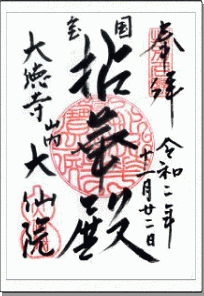 奉拝
令和二年
十一月廿二日
国宝
拈華殿
大徳寺山内
大仙院